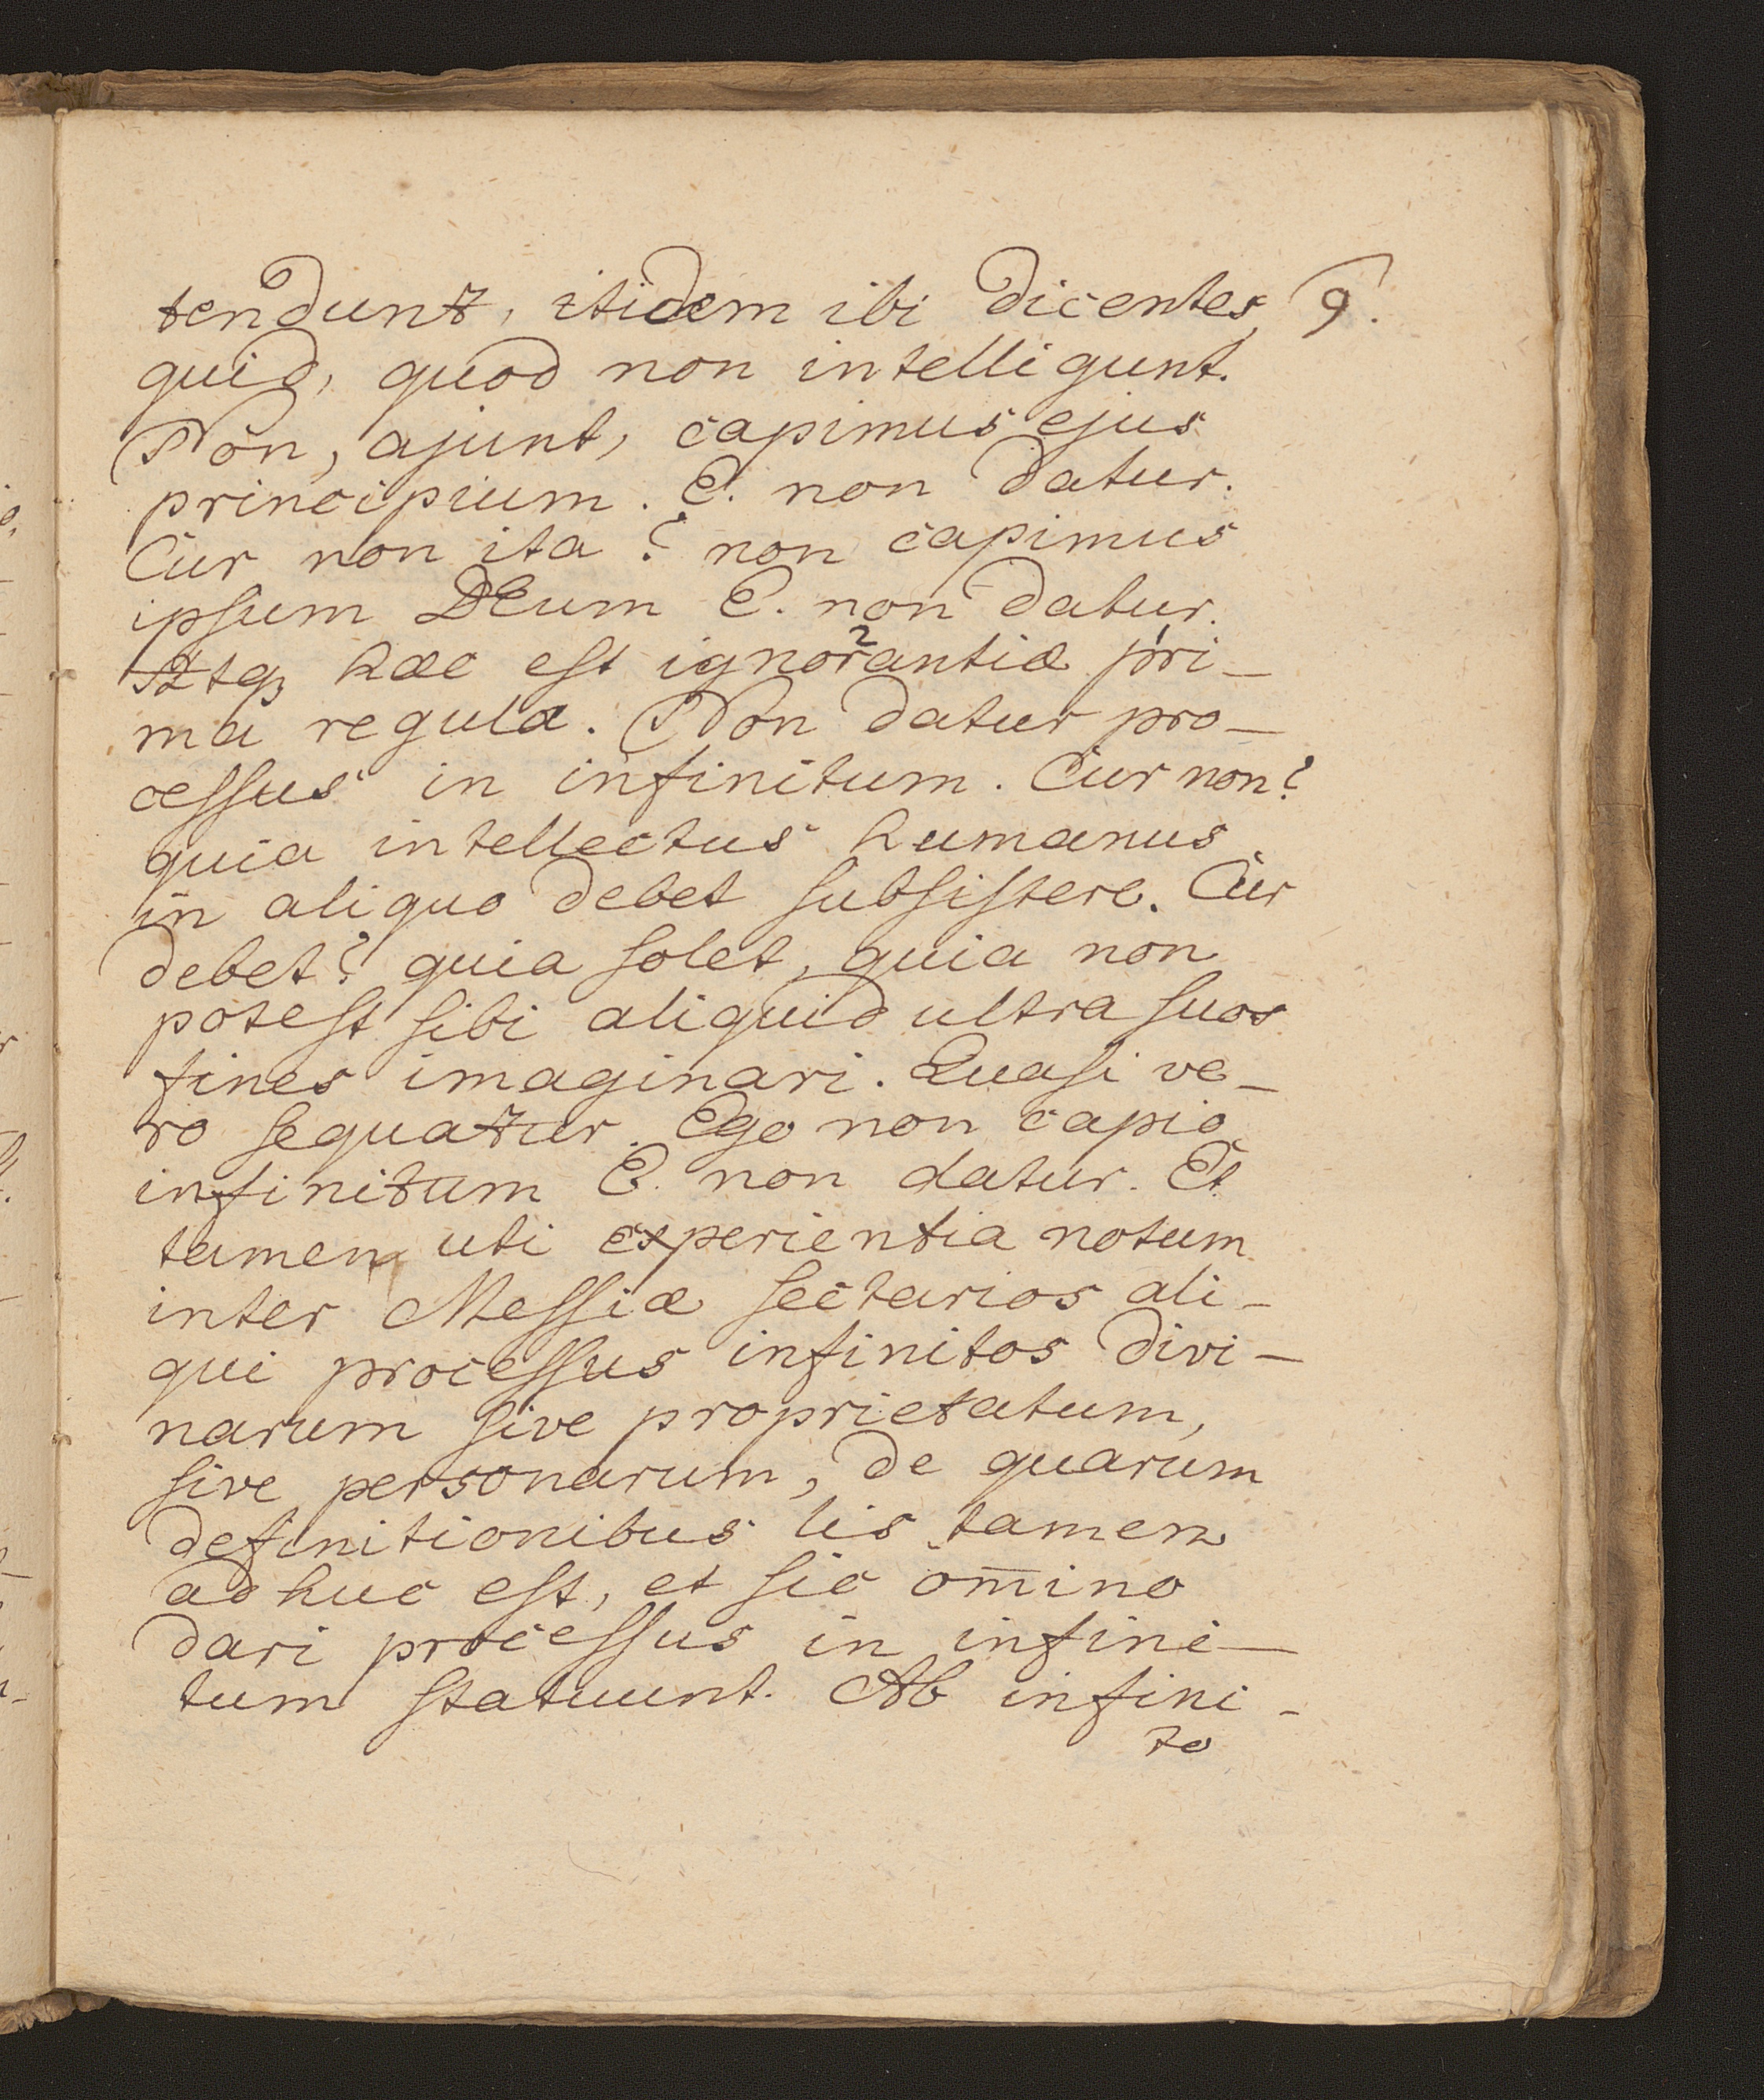 tendunt, itidem ibi dicentes 9.
quid, quod non intelligunt.
Non, ajunt, capimus ejus
principium. E. non datur.
Cur non ita? non capimus
ipsum DEum E. non datur.
Atq₃ hæc est ignorantiæ pri-
ma regula. Non datur pro-
cessus in infinitum. Cur non?
quia intellectus humanus
in aliquo debet subsistere. Cur
debet? quia solet, quia non
potest sibi aliquid ultra suos
fines imaginari. Quasi ve-
ro sequatur. Ego non capio
infinitum E. non datur. Et
tamen uti experientia notum
inter Messiæ sectarios ali-
qui processus infinitos divi-
narum sive proprietatum,
sive personarum, de quarum
definitionibus lis tamen
adhuc est, et sic om̄ino
dari processus in infini-
tum statuunt. Ab infini-
to